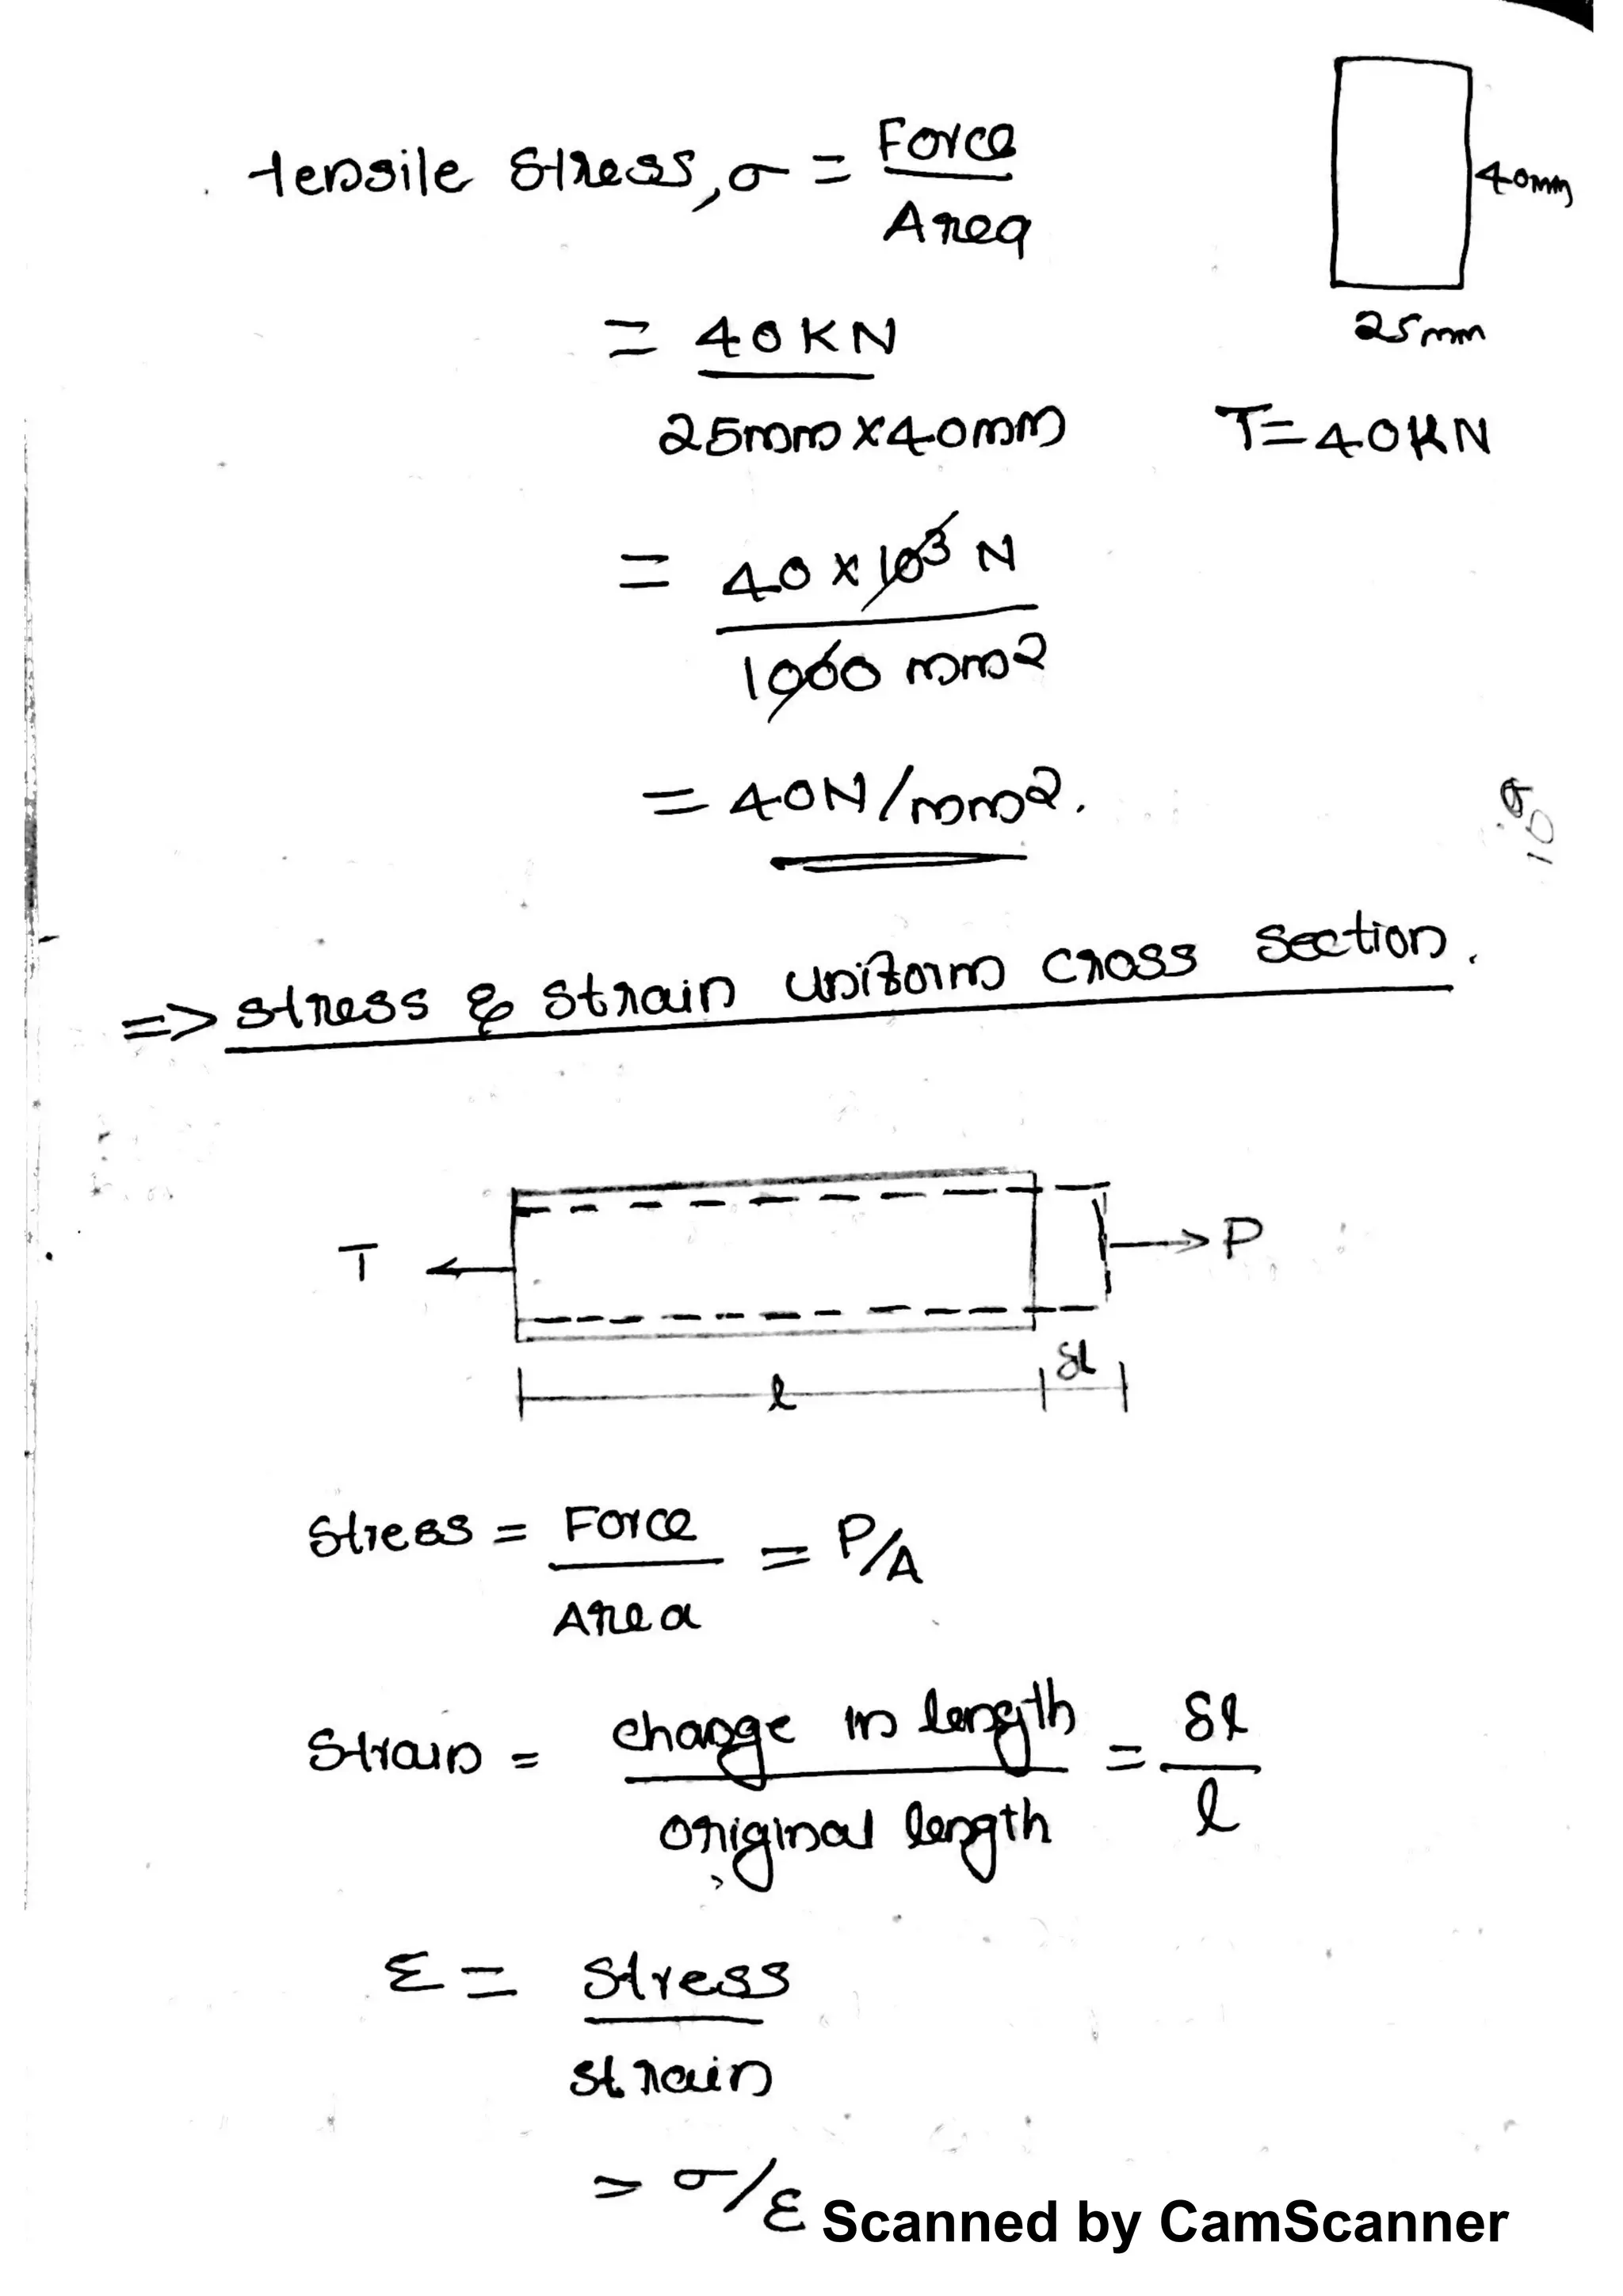 tensile stress, σ = Force
Area
40mm
25mm
= 40KN
25mm x 40mm
T=40KN
= 40 x 10³ N
1000 mm²
= 40N/mm².
=> stress & strain uniform cross section.
T
P
l
δl
Stress = Force = P/A
Area
Strain = change in length = δl
original length l
Ɛ = Stress
strain
= σ/Ɛ
Scanned by CamScanner